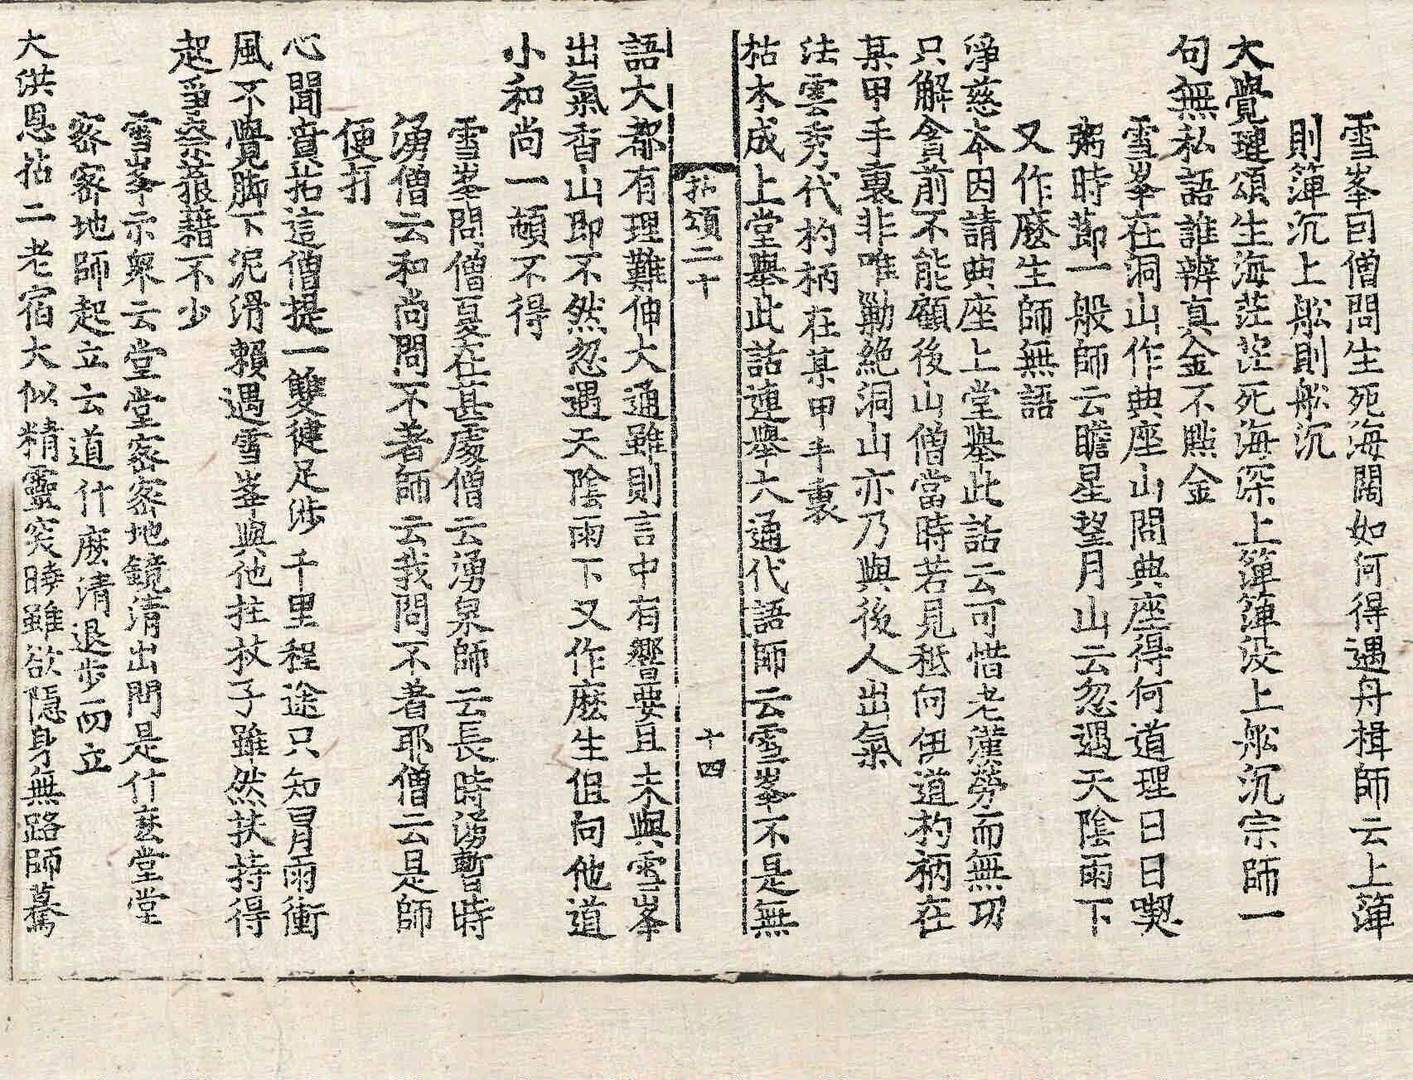 雪峯因僧問生死海闊如何得遇舟楫師云上簰
則簰沉上舩則舩沉
大覺璉頌生海茫茫死海深上簰簰没上舩沉宗師一
句無私語誰辨真金不點金
雪峯在洞山作典座山問典座得何道理日日喫
粥時節一般師云瞻星望月山云忽遇天陰雨下
又作麽生師無語
淨慈本因請典座上堂舉此話云可惜老漢勞而無功
只解貪前不能顧後山僧當時若見秖向伊道杓柄在
某甲手裏非唯勦絶洞山亦乃與後人出氣
法雲秀代杓柄在某甲手裏
枯木成上堂舉此話連舉大通代語師云雪峯不是無
拈頌二十
十四
語大都有理難伸大通雖則言中有響要且未與雪峯
出氣香山即不然忽遇天陰雨下又作麽生但向他道
小和尚一頓不得
雪峯問僧夏在甚處僧云湧泉師云長時湧暫時
湧僧云和尚問不著師云我問不著耶僧云是師
便打
心聞賁拈這僧提一雙徤足涉千里程途只知冐雨衝
風不覺脚下泥滑賴遇雪峯與他拄杖子雖然扶持得
起爭柰狼藉不少
雪峯示衆云堂堂密密地鏡清出問是什麽堂堂
密密地師起立云道什麽清退步而立
大洪恩拈二老宿大似精靈突曉雖欲隱身無路師驀